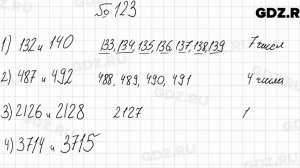 № 123
GDZ.RU
1) 132 и 140 133, 134, 135, 136, 137, 138, 139 7 чисел
2) 487 и 492 488, 489, 490, 491 4 числа
3) 2126 и 2128 2127 1
4) 3714 и 3715
GDZ.RU